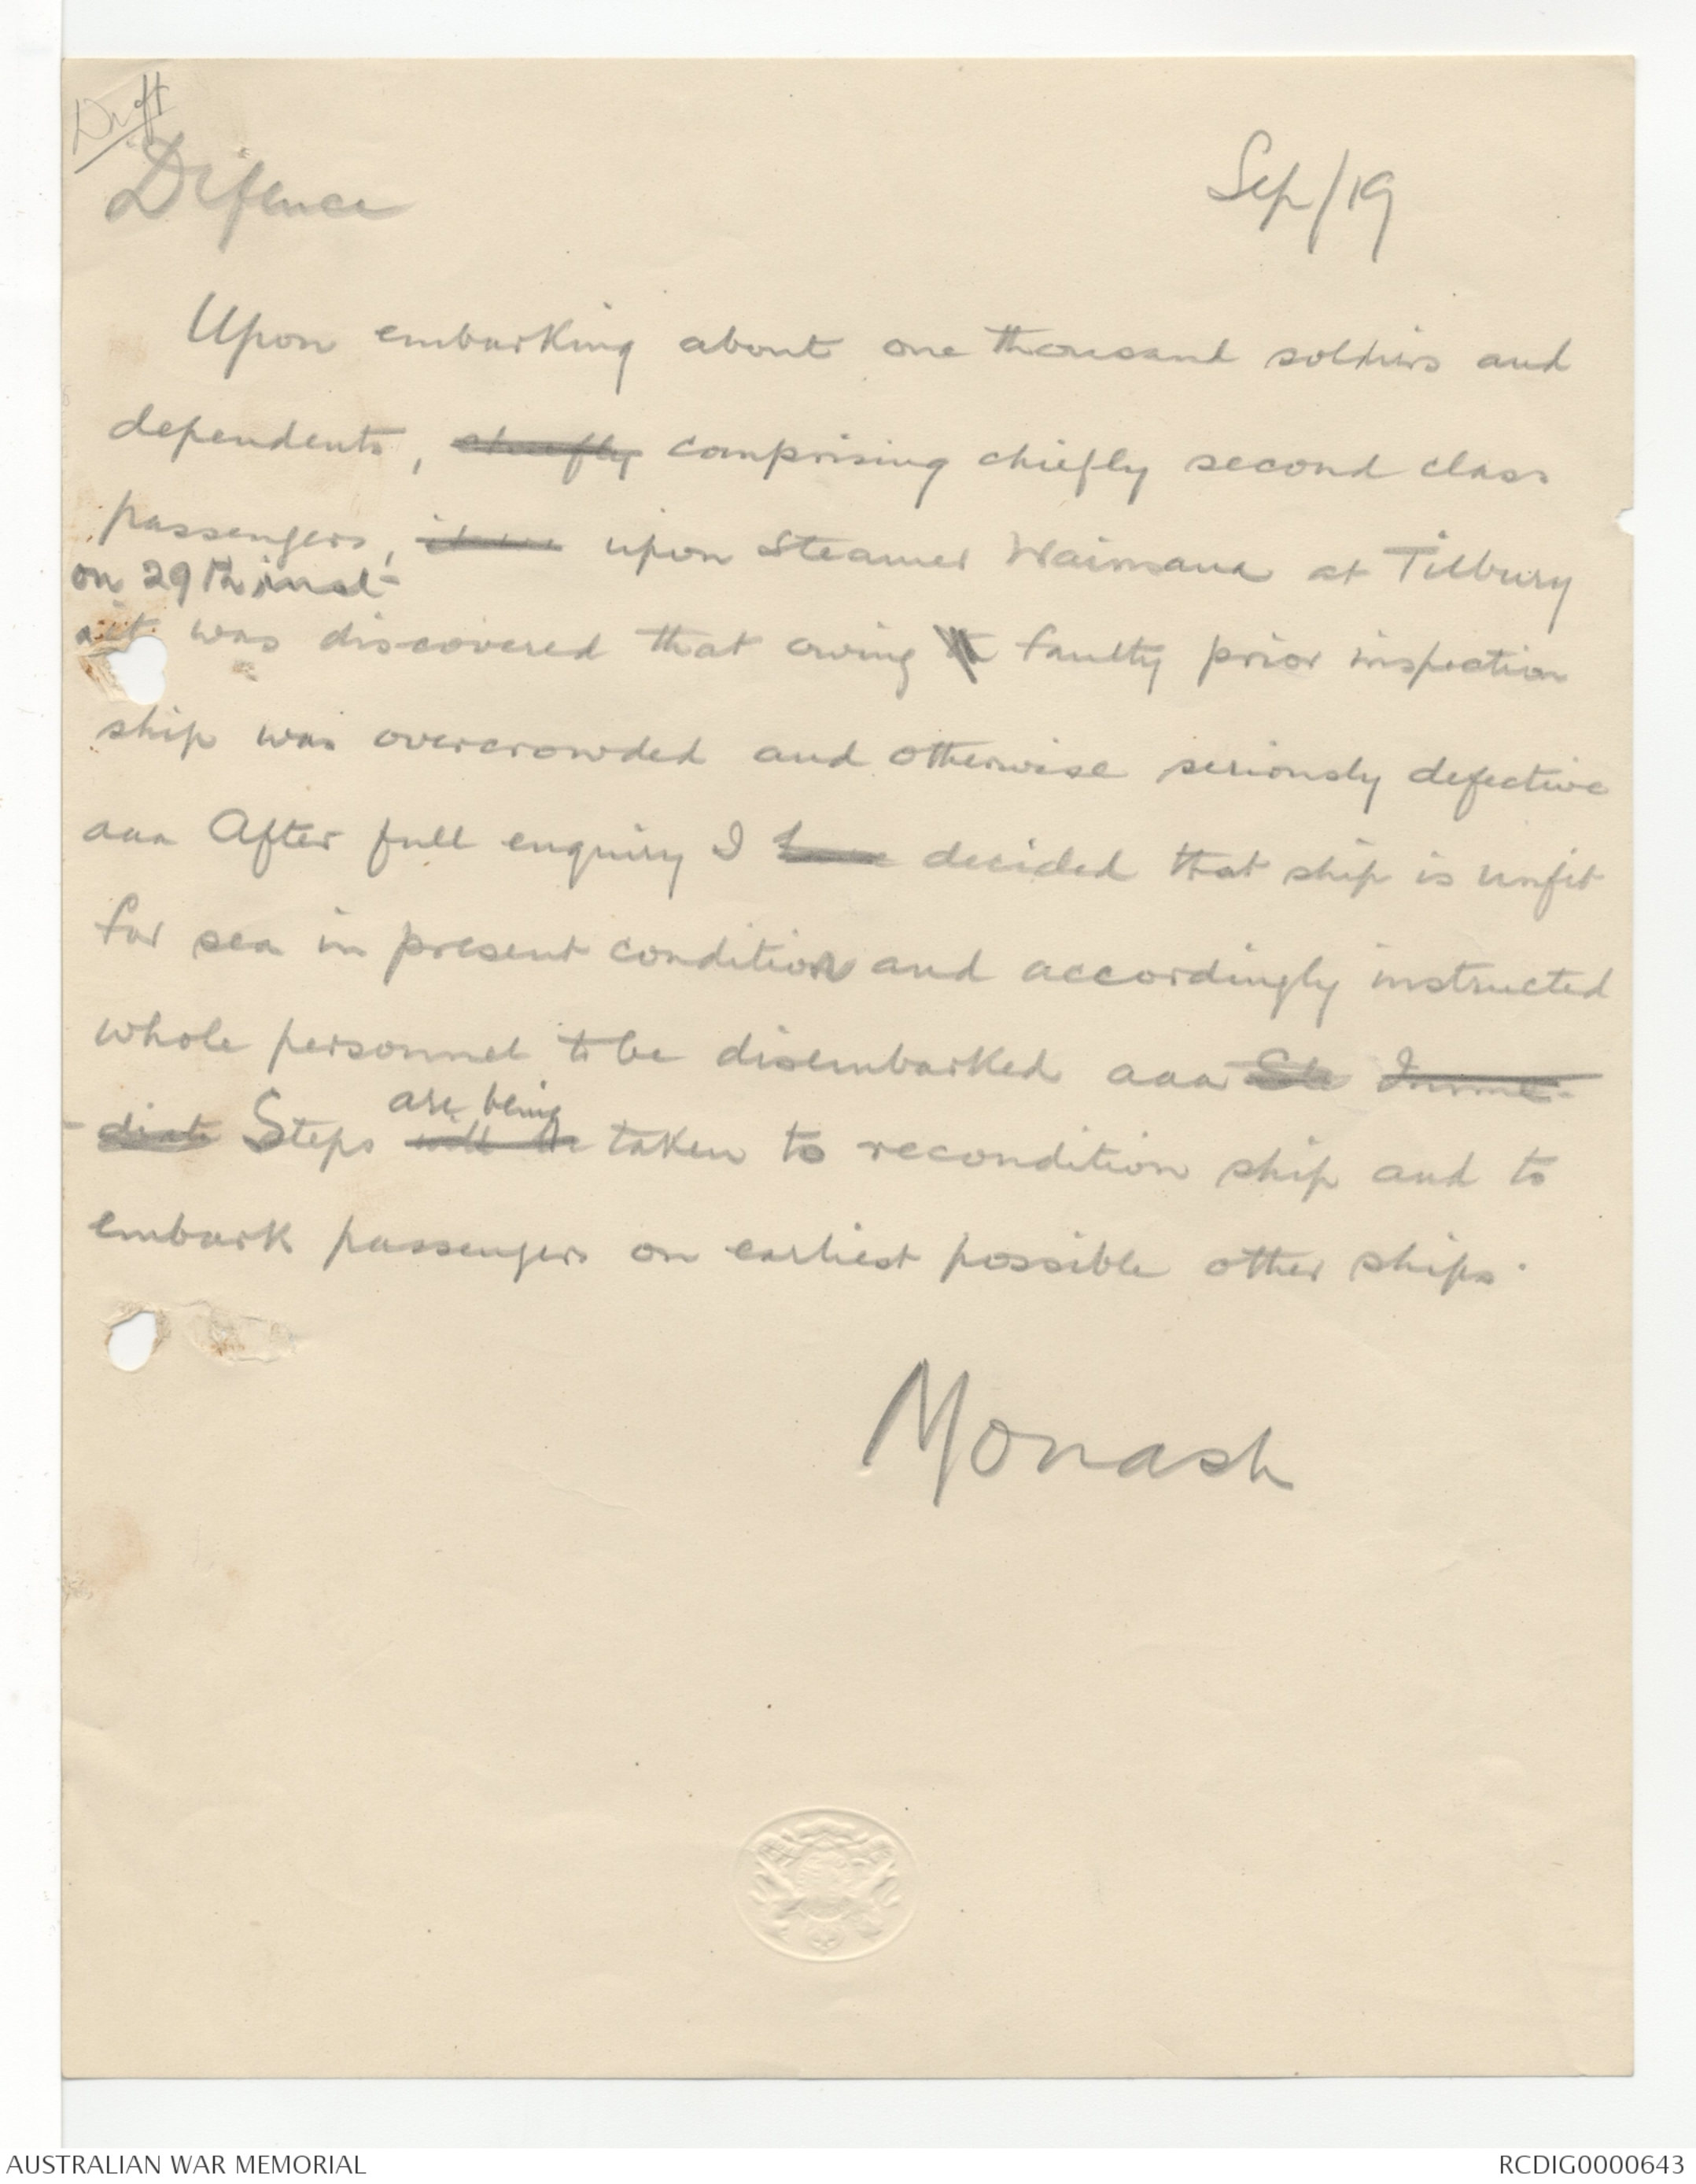 Draft
Defence
Sep/19
Upon embarking about one thousand soldiers and
dependents, chiefly comprising chiefly second class
passengers, upon Steamer Waimana at Tilbury
on 29th inst
it was discovered that owing to faulty prior inspection
ship was overcrowded and otherwise seriously defective
aaa After full enquiry I have decided that ship is unfit
for sea in present condition and accordingly instructed
whole personnel to be disembarked aaa Ste Imme-
are being
-diate Steps will be taken to recondition ship and to
embark passengers on earliest possible other ships.
Monash
AUSTRALIAN WAR MEMORIAL
RCDIG0000643